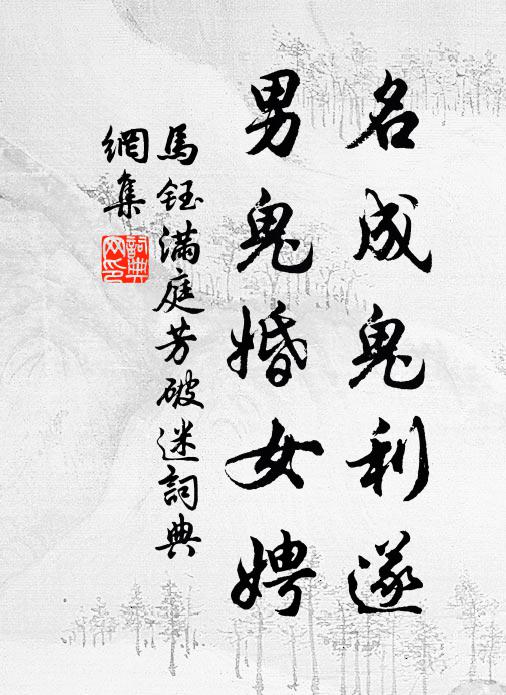 名成鬼利遂
男鬼婚女娉
馬鈺滿庭芳破迷詞典
網集
詞典網印